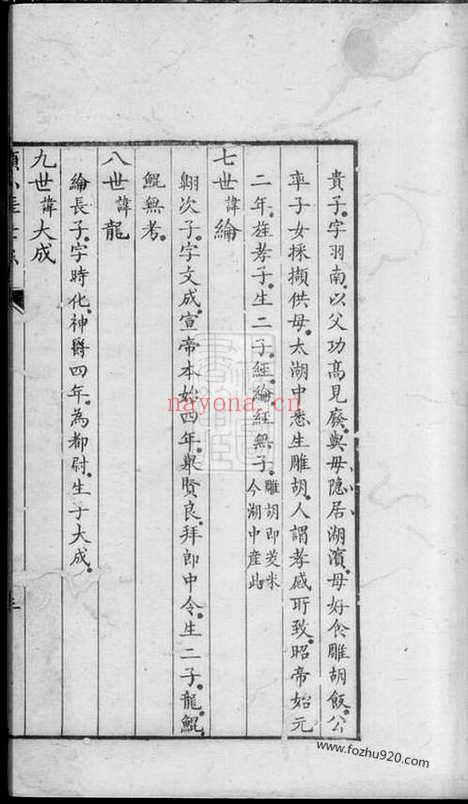 貴子字羽南以父功高見廢與母隐居湖濱母好食雕胡飯公
率子女採擷供母太湖中悉生雕胡人謂孝感所致昭帝始元
二年旌孝子生二子經綸經無子雕胡即茭米
今湖中産此
七世諱綸
翱次子字文成宣帝本始四年舉賢良拜郎中令生二子龍鯤
鯤無考
八世諱龍
綸長子字時化神爵四年為都尉生子大成
九世諱大成
nayona.cn
www.fozhu920.com